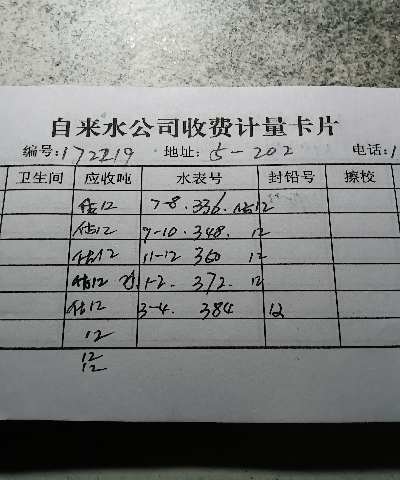 自来水公司收费计量卡片
编号:172219 地址:5-202 电话:1
卫生间 应收吨 水表号 封铅号 擦校
估12 7-8. 336. 估12
估12 9-10. 348. 12
估12 11-12 360 12
估12 1-2. 372. 12
估12 3-4. 384 12
12
12
12